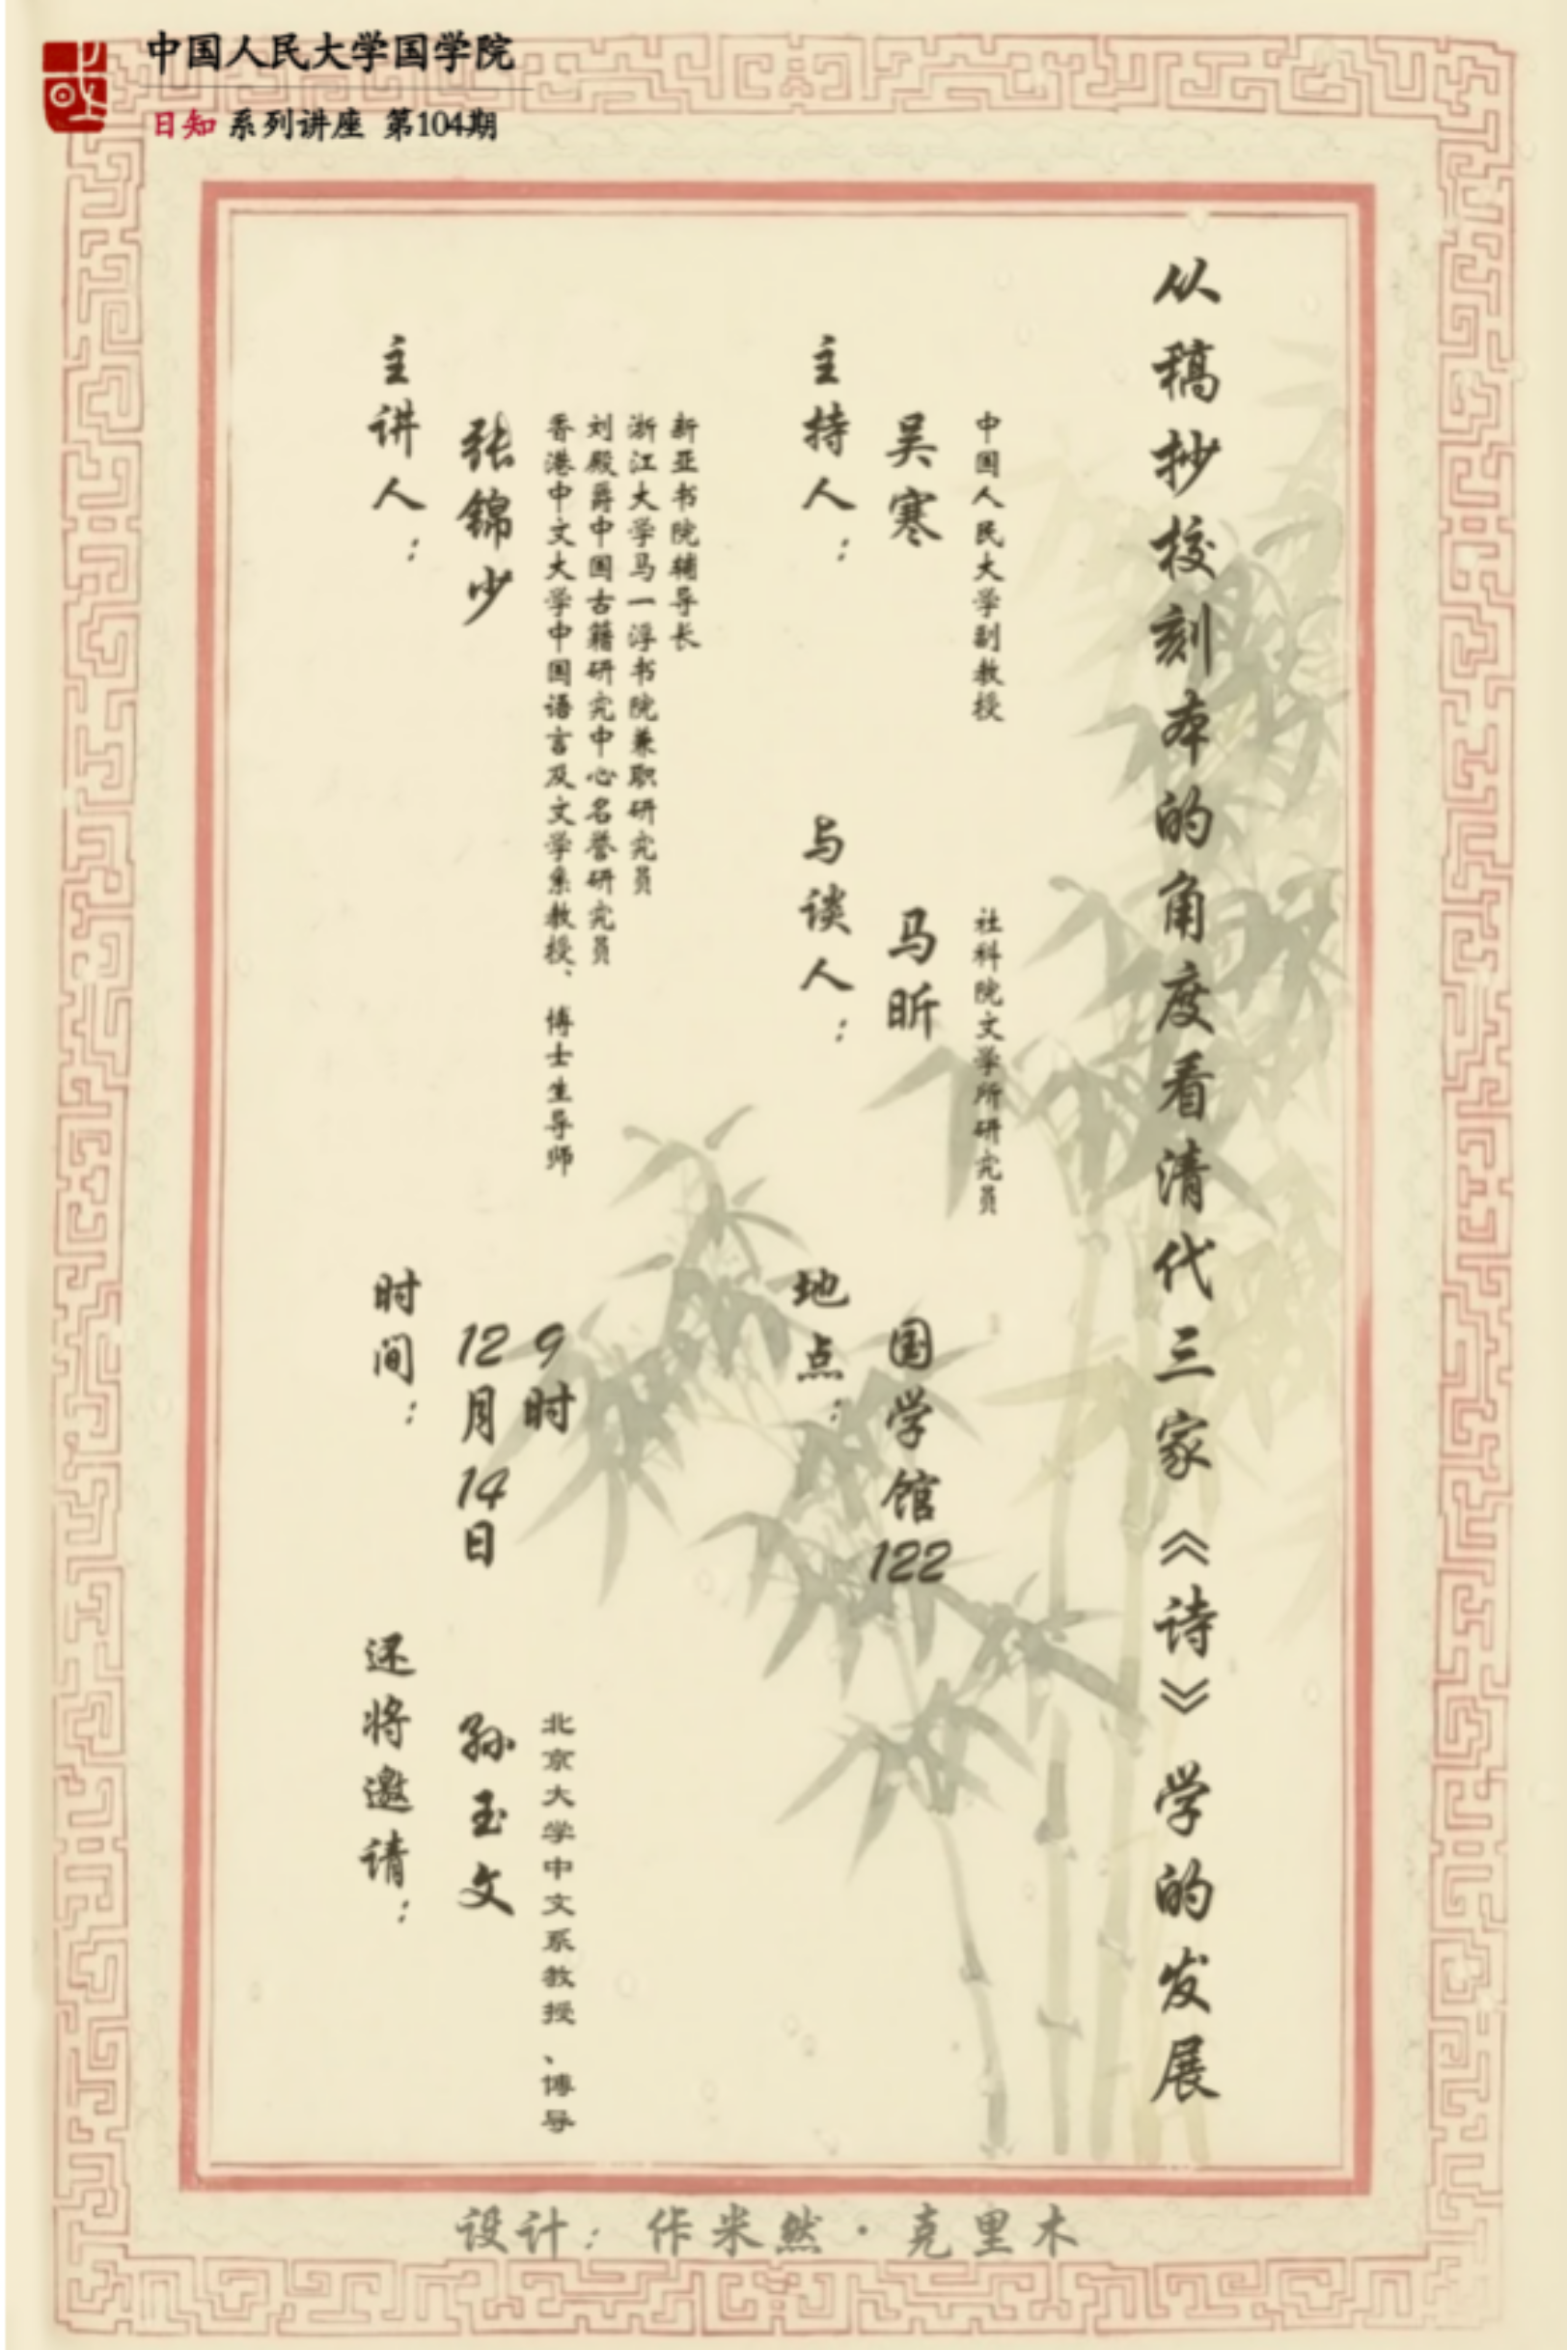 中国人民大学国学院
日知 系列讲座 第104期
从稿抄校刻本的角度看清代三家《诗》学的发展
主持人：
吴寒
中国人民大学副教授
与谈人：
马昕
社科院文学所研究员
地点：
国学馆122
主讲人：
张錦少
香港中文大学中国语言及文学系教授、博士生导师
刘殿爵中国古籍研究中心名誉研究员
浙江大学马一浮书院兼职研究员
新亚书院辅导长
时间：
12月14日
9时
还将邀请：
孙玉文
北京大学中文系教授、博导
设计：作米然·克里木